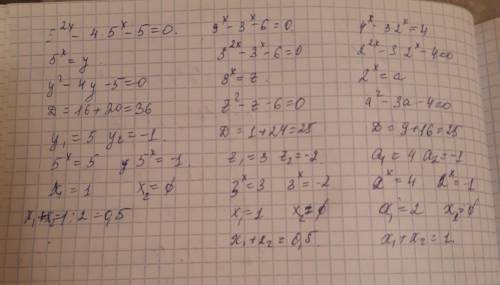 5^2x - 4·5^x - 5 = 0.
5^x = y
y² - 4y - 5 = 0
D = 16 + 20 = 36
y₁ = 5 y₂ = -1
5^x = 5 5^x = -1
x₁ = 1 x₂ = ∅
x₁+x₂=1:2 = 0,5
9^x - 3^x - 6 = 0
3^2x - 3^x - 6 = 0
3^x = z.
z² - z - 6 = 0
D = 1 + 24 = 25
z₁ = 3 z₂ = -2
3^x = 3 3^x = -2
x₁ = 1 x₂ = ∅
x₁ + x₂ = 0,5.
4^x - 3·2^x = 4
2^2x - 3·2^x - 4 = 0
2^x = a
a² - 3a - 4 = 0
D = 9 + 16 = 25
a₁ = 4 a₂ = -1
2^x = 4 2^x = -1
x₁ = 2 x₂ = ∅
x₁ + x₂ = 1.